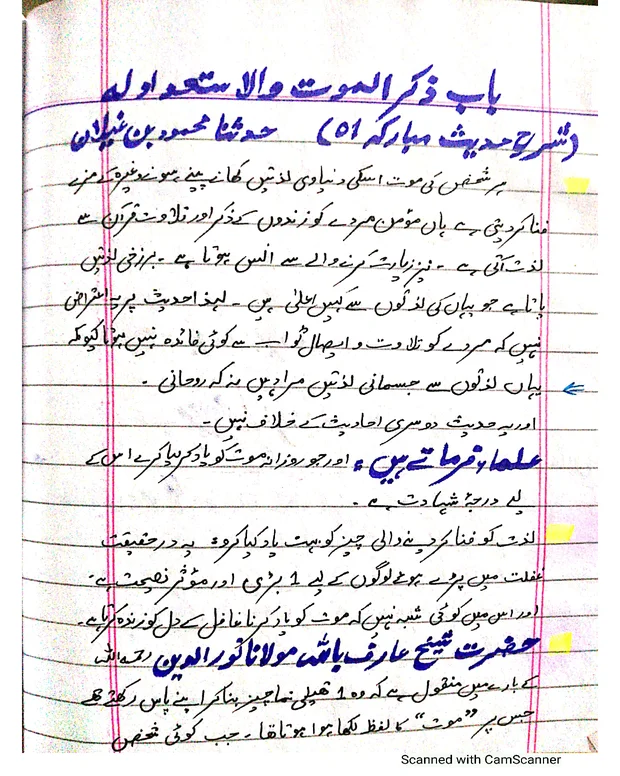 باب ذکر الموت والاستعداد له
(شرح حدیث مبارکہ 01) حدثنا محمود بن غیلان
ہر شخص کی موت اسکی دنیاوی لذتیں کھانے پینے، سونے وغیرہ کے مزے
فنا کر دیتی ہے ہاں مؤمن مردے کو زندوں کے ذکر اور تلاوت قرآن سے
لذت آتی ہے ۔ نیز زیارت کرنے والے سے انس ہوتا ہے ۔ برزخی لذتیں
پاتا ہے جو یہاں کی لذتوں سے کہیں اعلیٰ ہیں ۔ لہذا حدیث پر یہ اعتراض
نہیں کہ مردے کو تلاوت و ایصال ثواب سے کوئی فائدہ نہیں ہوتا کیونکہ
یہاں لذتوں سے جسمانی لذتیں مراد ہیں نہ کہ روحانی ۔
اور یہ حدیث دوسری احادیث کے خلاف نہیں ۔
علماء فرماتے ہیں : اور جو روزانہ موت کو یاد کر لیا کرے اس کے
لیے درجۂ شہادت ہے ۔
لذت کو فنا کر دینے والی چیز کو بہت یاد کیا کرو : یہ در حقیقت
غفلت میں پڑے ہوئے لوگوں کے لیے 1 بڑی اور مؤثر نصیحت ہے ۔
اور اس میں کوئی شبہ نہیں کہ موت کو یاد کرنا غافل کے دل کو زندہ کرتا ہے ۔
حضرت شیخ عارف باللہ مولانا نور الدین رحمۃ اللہ
کے بارے میں منقول ہے کہ وہ 1 تھیلی نما چیز بنا کر اپنے پاس رکھتے تھے
جس پر "موت" کا لفظ لکھا ہوا ہوتا تھا ۔ جب کوئی شخص
Scanned with CamScanner